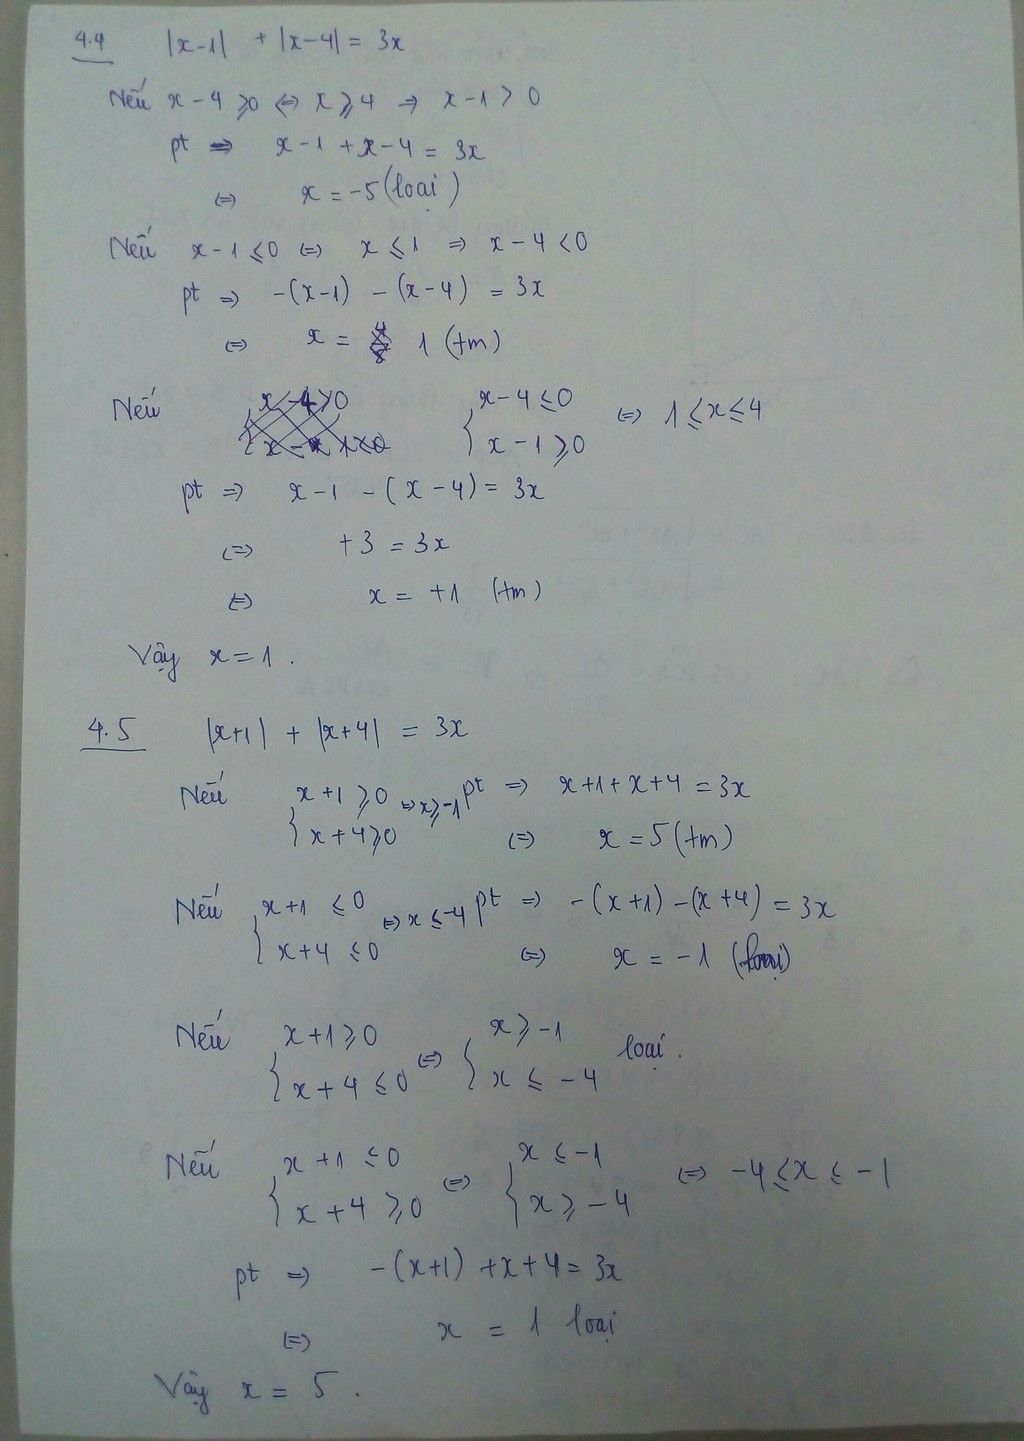 4.4 |x-1| + |x-4| = 3x
Nếu x-4 ⩾0 ⇔ x ⩾ 4 ⇒ x-1 > 0
pt ⇒ x-1 + x-4 = 3x
⇔ x = -5 (loại)
Nếu x-1 ⩽0 ⇔ x ⩽ 1 ⇒ x-4 < 0
pt ⇒ -(x-1) - (x-4) = 3x
⇔ x = 1 (tm)
Nếu { x-4 ⩽0 ⇔ 1 ⩽ x ⩽ 4
x-1 ⩾0
pt ⇒ x-1 - (x-4) = 3x
⇔ +3 = 3x
⇔ x = +1 (tm)
Vậy x = 1.
4.5 |x+1| + |x+4| = 3x
Nếu { x+1 ⩾0 ⇔ x⩾-1 pt ⇒ x+1+x+4 = 3x
x+4⩾0 ⇔ x = 5 (tm)
Nếu { x+1 ⩽0 ⇔ x ⩽-4 pt ⇒ -(x+1) -(x+4) = 3x
x+4 ⩽0 ⇔ x = -1 (loại)
Nếu { x+1⩾0 ⇔ { x⩾-1 loại.
x+4 ⩽0 x ⩽ -4
Nếu { x+1 ⩽0 ⇔ { x ⩽-1 ⇔ -4 ⩽ x ⩽ -1
x+4 ⩾0 x ⩾ -4
pt ⇒ -(x+1) +x+4 = 3x
⇔ x = 1 loại
Vậy x = 5.